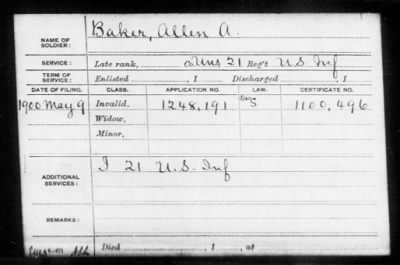 NAME OF SOLDIER: Baker, Allen A.
SERVICE: Late rank, Co Uns 21 Reg't U S Inf
TERM OF SERVICE: Enlisted , 1 Discharged , 1
DATE OF FILING. CLASS. APPLICATION NO. LAW. CERTIFICATE NO.
1900 May 9 Invalid, 1248,191 1100,496
Widow,
Minor,
ADDITIONAL SERVICES: I 21 U.S. Inf
REMARKS:
Died , 1 , at